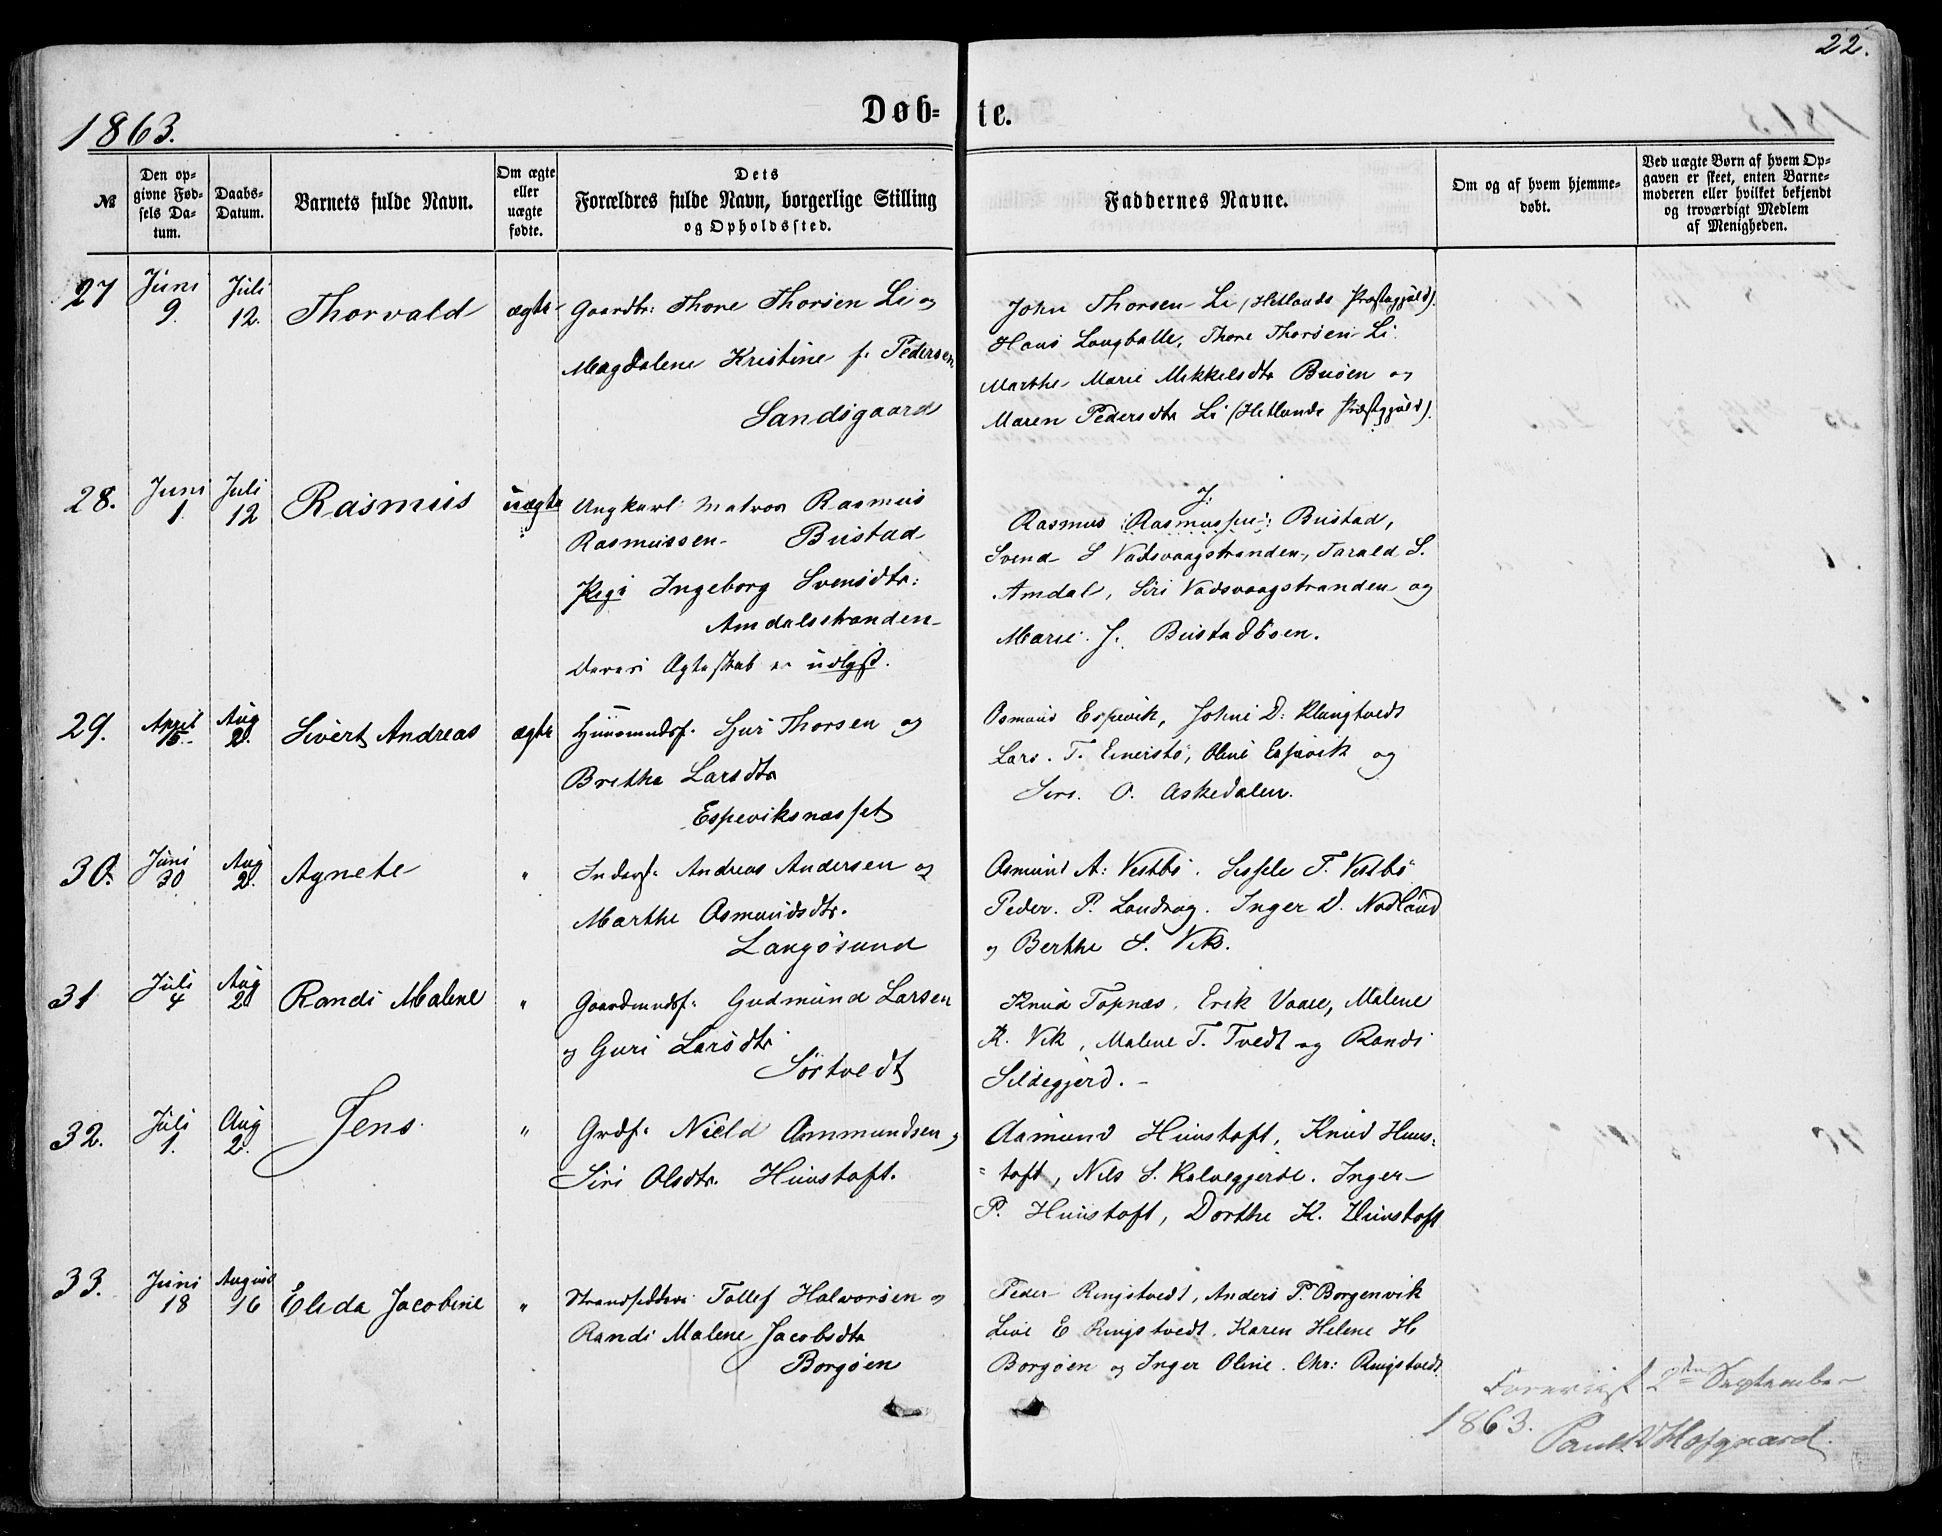 22.
1863.
Døb- te.
№
Den opgivne Fødsels Datum.
Daabs-Datum.
Barnets fulde Navn.
Om ægte eller uægte fødte.
Dets Forældres fulde Navn, borgerlige Stilling og Opholdssted.
Faddernes Navne.
Om og af hvem hjemmedøbt.
Ved uægte Børn af hvem Opgaven er skeet, enten Barnemoderen eller hvilket bekjendt og troværdigt Medlem af Menigheden.
27 Juni 9. Juli 12. Thorvald ægte Gaardbr: Thore Thorsen Li og
Magdalene Kristine f. Pedersen
Sandsgaard
John Thorsen Li (Hetlands Præstegjæld).
Hans Langballe, Thore Thorsen Li.
Marthe Marie Mikkelsdtr Buöen og
Maren Pedersdtr Li (Hetlands Præstegjæld).
28. Juni 1 Juli 12 Rasmus uægte Ungkarl Matros Rasmus
Rasmussen Bustad
Pige Ingeborg Svensdtr:
Amdalsstranden
Deres Ægteskab er udlyst.
J:
Rasmus Rasmussen Bustad,
Svend S Vadsvaagstranden, Tarald S.
Amdal, Siri Vadsvaagstranden og
Marie J. Bustadöen.
29. April 15. Aug 2. Sivert Andreas ægte Huusmndsf. Sjur Thorsen og
Brethe Larsdtr
Espeviksnæsset
Osmund Espevik, Johne D: Klungtvedt
Lars. T. Einerstö, Oline Espevik og
Siri. O. Askedalen.
30. Juni 30 Aug 2. Agnete " Inderf. Andreas Andersen og
Marthe Osmundsdtr.
Langösund
Osmund A: Vestbö. Sissele T. Vestbö
Peder. P. Landvag. Inger D. Nodland
og Berthe S. Vik.
31 Juli 4 Aug 2 Randi Malene " Gaardmndsf. Gudmund Larsen
og Guri Larsdtr
Sörtvedt
Knud Topnæs. Erik Vaage, Malene
K. Vik, Malene T. Tvedt og Randi
Sildegjerd.
32. Juli 1. Aug 2. Jens. " Grdf. Nield Ammundsen og
Siri Olsdtr. Huustoft.
Aamund Huustoft, Knud Huus-
toft, Nils S. Kalvegjerde. Inger
P. Huustoft, Dorthe K. Huustoft
33. Juni 18 August 16 Elida Jacobine " Strandsidderi Tollef Halvorsen og
Randi Malene Jacobsdtr
Borgöen
Peder Ringstvedt, Anders P. Borgenvik
Live E Ringstvedt. Karen Helene H
Borgöen og Inger Oline. Chr: Ringstvedt.
Foreviist 2den September
1863.
Hofgaard.